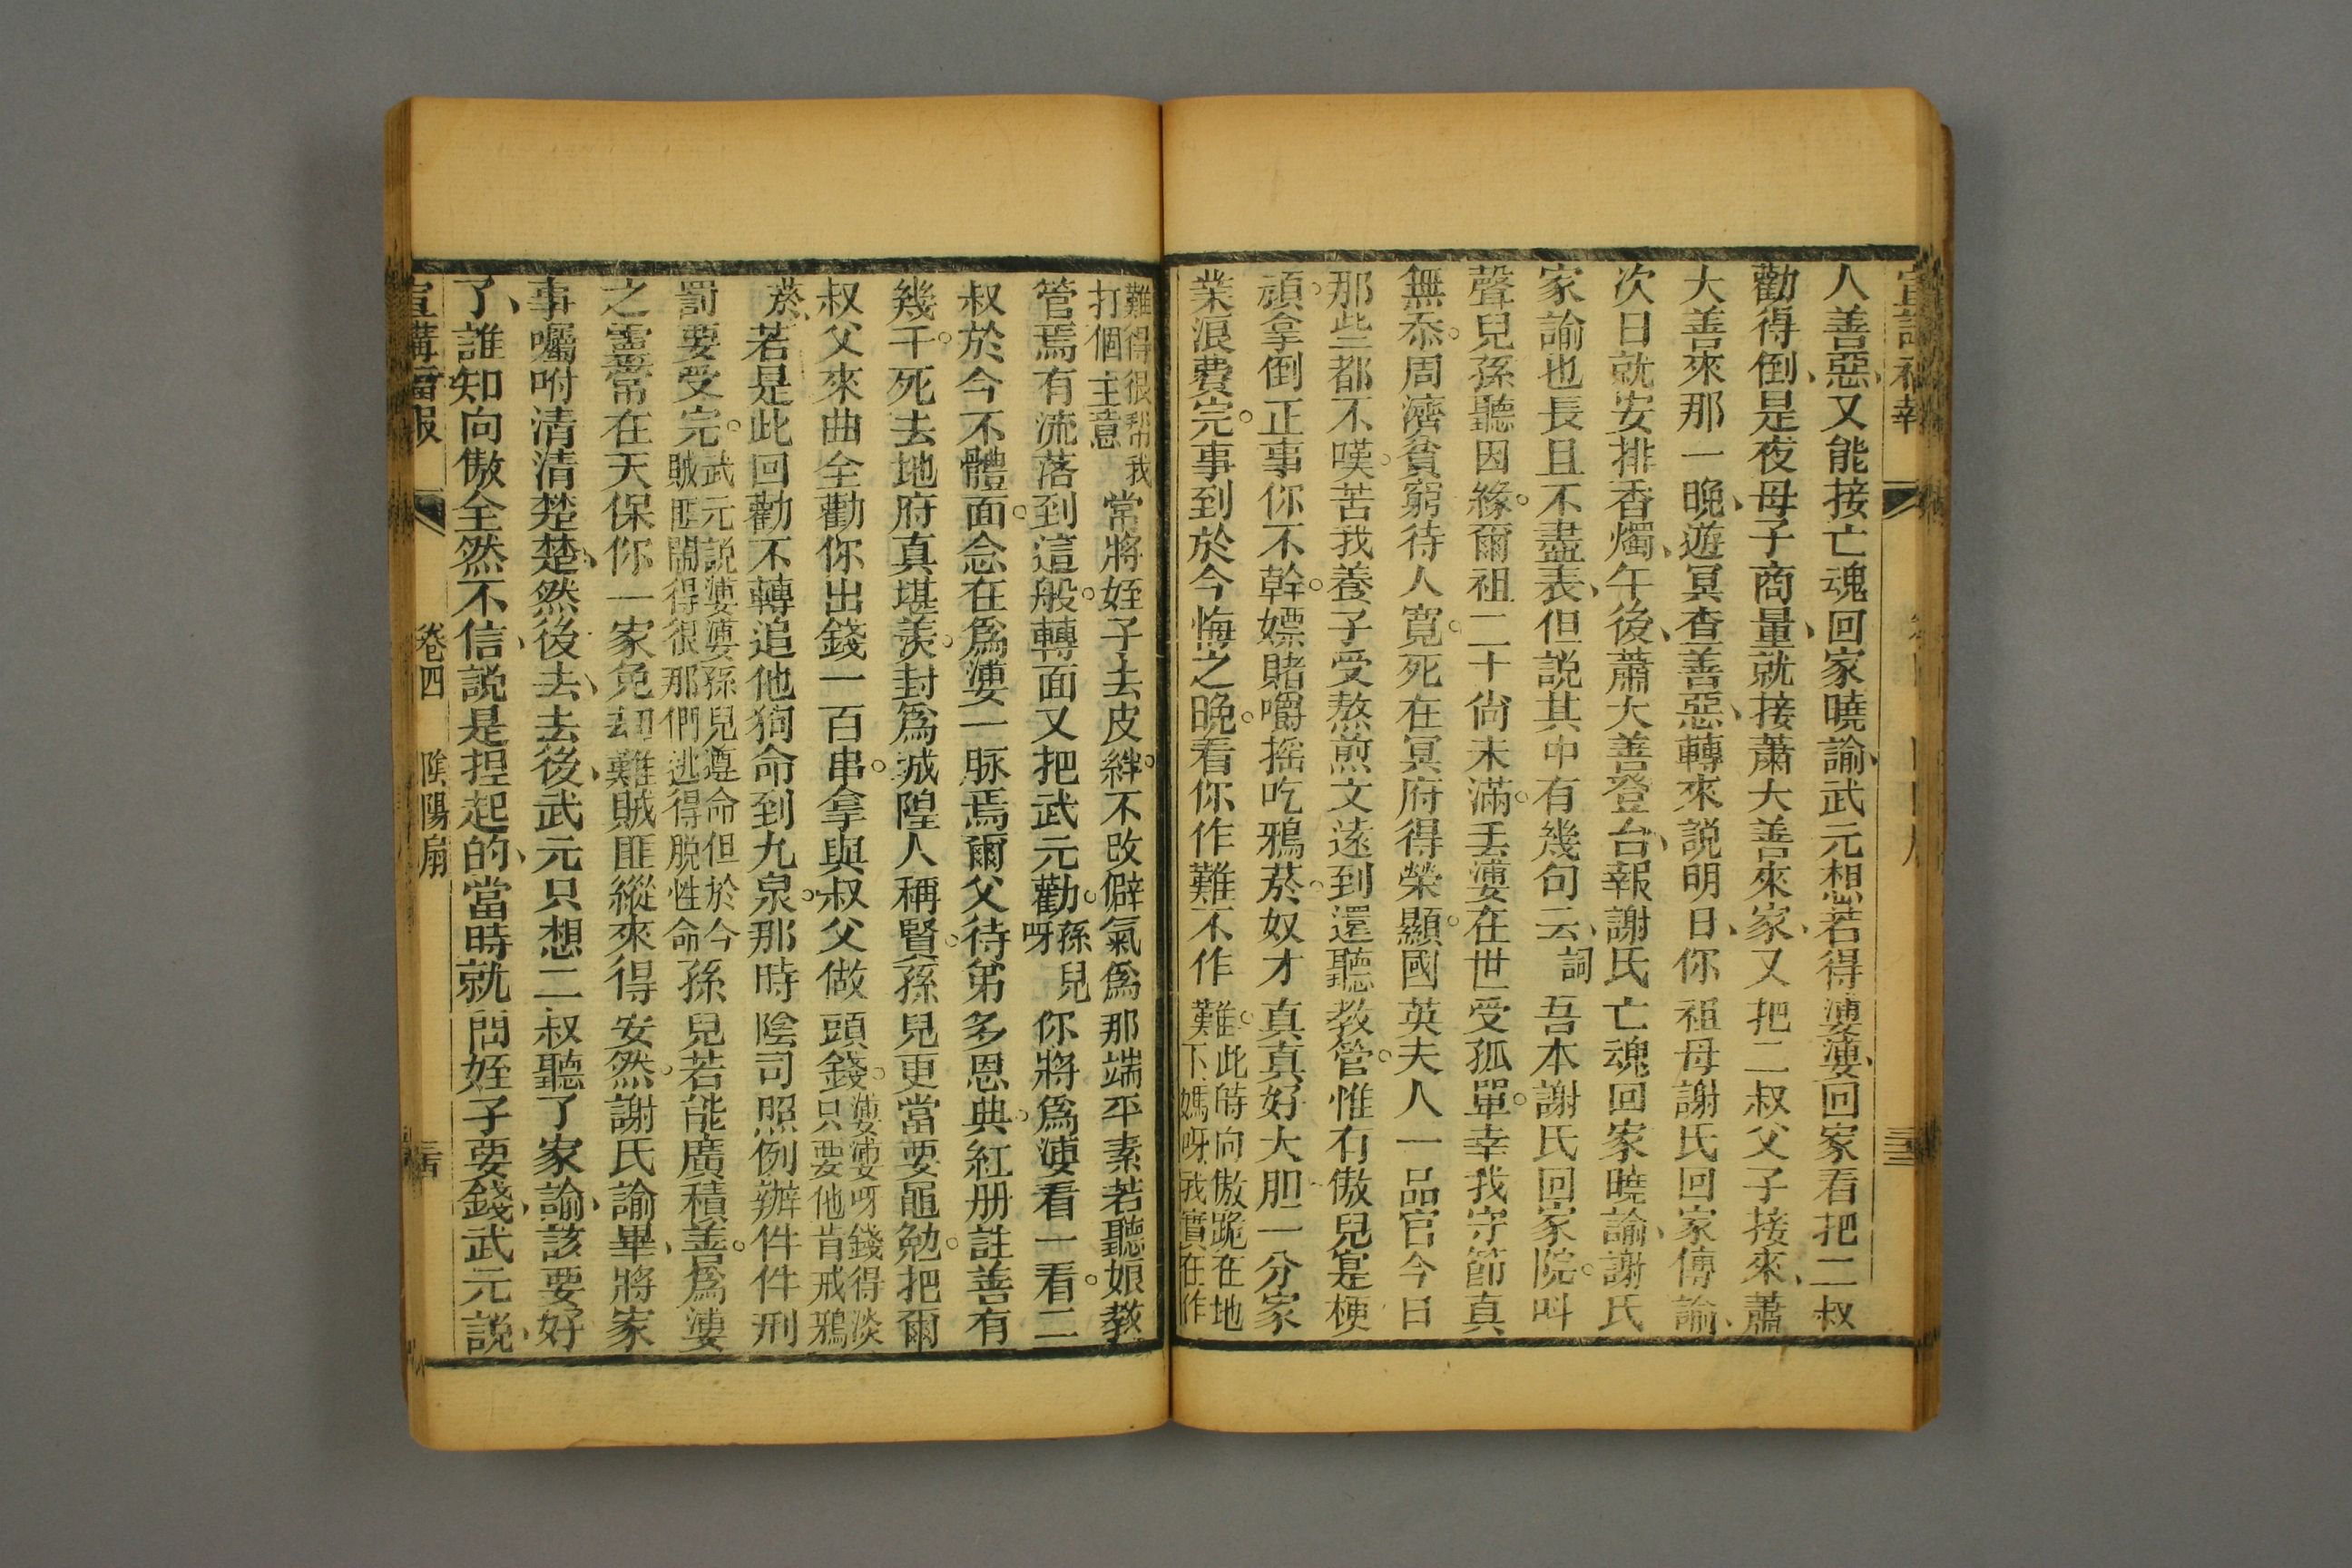 人善惡、又能接亡魂回家曉諭、武元想若得㜑㜑、回家看把二叔
勸得倒、是夜母子商量、就接蕭大善來家、又把二叔父子接來、蕭
大善來那一晚、遊冥查善惡、轉來説明日、你祖母謝氏回家傳諭、
次日就安排香燭、午後、蕭大善登台、報謝氏亡魂回家曉諭、謝氏
家諭也長且不盡表、但説其中有幾句云、詞吾本謝氏回家院。叫
聲兒孫聽因緣。爾祖二十尙未滿。丟㜑在世受孤單。幸我守節真
無忝。周濟貧窮待人寬。死在冥府得榮顯。國英夫人一品官今日
那些都不嘆。苦我養子受熬煎文遠到還聽教管。惟有傲兒寔梗
頑。拿倒正事你不幹。嫖賭嚼摇吃鴉菸。奴才真真好大胆一分家
業浪費完。事到於今悔之晚。看你作難不作難。此時向傲跪在地下媽呀我實在作
難得很幫我打個主意常將姪子去皮絆。不改僻氣爲那端平素若聽娘教
管焉有流落到這般。轉面又把武元勸。孫兒呀你將爲㜑看一看。二
叔於今不體面。念在爲㜑一脉焉爾父待弟多恩典。紅册註善有
幾千。死去地府真堪羡。封爲城隍人稱賢。孫兒更當要黽勉。把爾
叔父來曲全勸你出錢一百串。拿與叔父做頭錢。㜑㜑呀錢得淡只要他肯戒鴉
菸、若是此回勸不轉追他狗命到九泉。那時陰司照例辦件件刑
罰要受完。武元説㜑㜑孫兒遵命但於今賊匪鬧得很那們逃得脱性命孫兒若能廣積善。爲㜑
之靈常在天保你一家免刼難賊匪縱來得安然。謝氏諭畢、將家
事囑咐清清楚楚、然後去、去後、武元只想二叔聽了家諭、該要好
了、誰知向傲全然不信、説是揑起的、當時就問姪子要錢、武元説、
宣講福報 卷四 陰陽扇